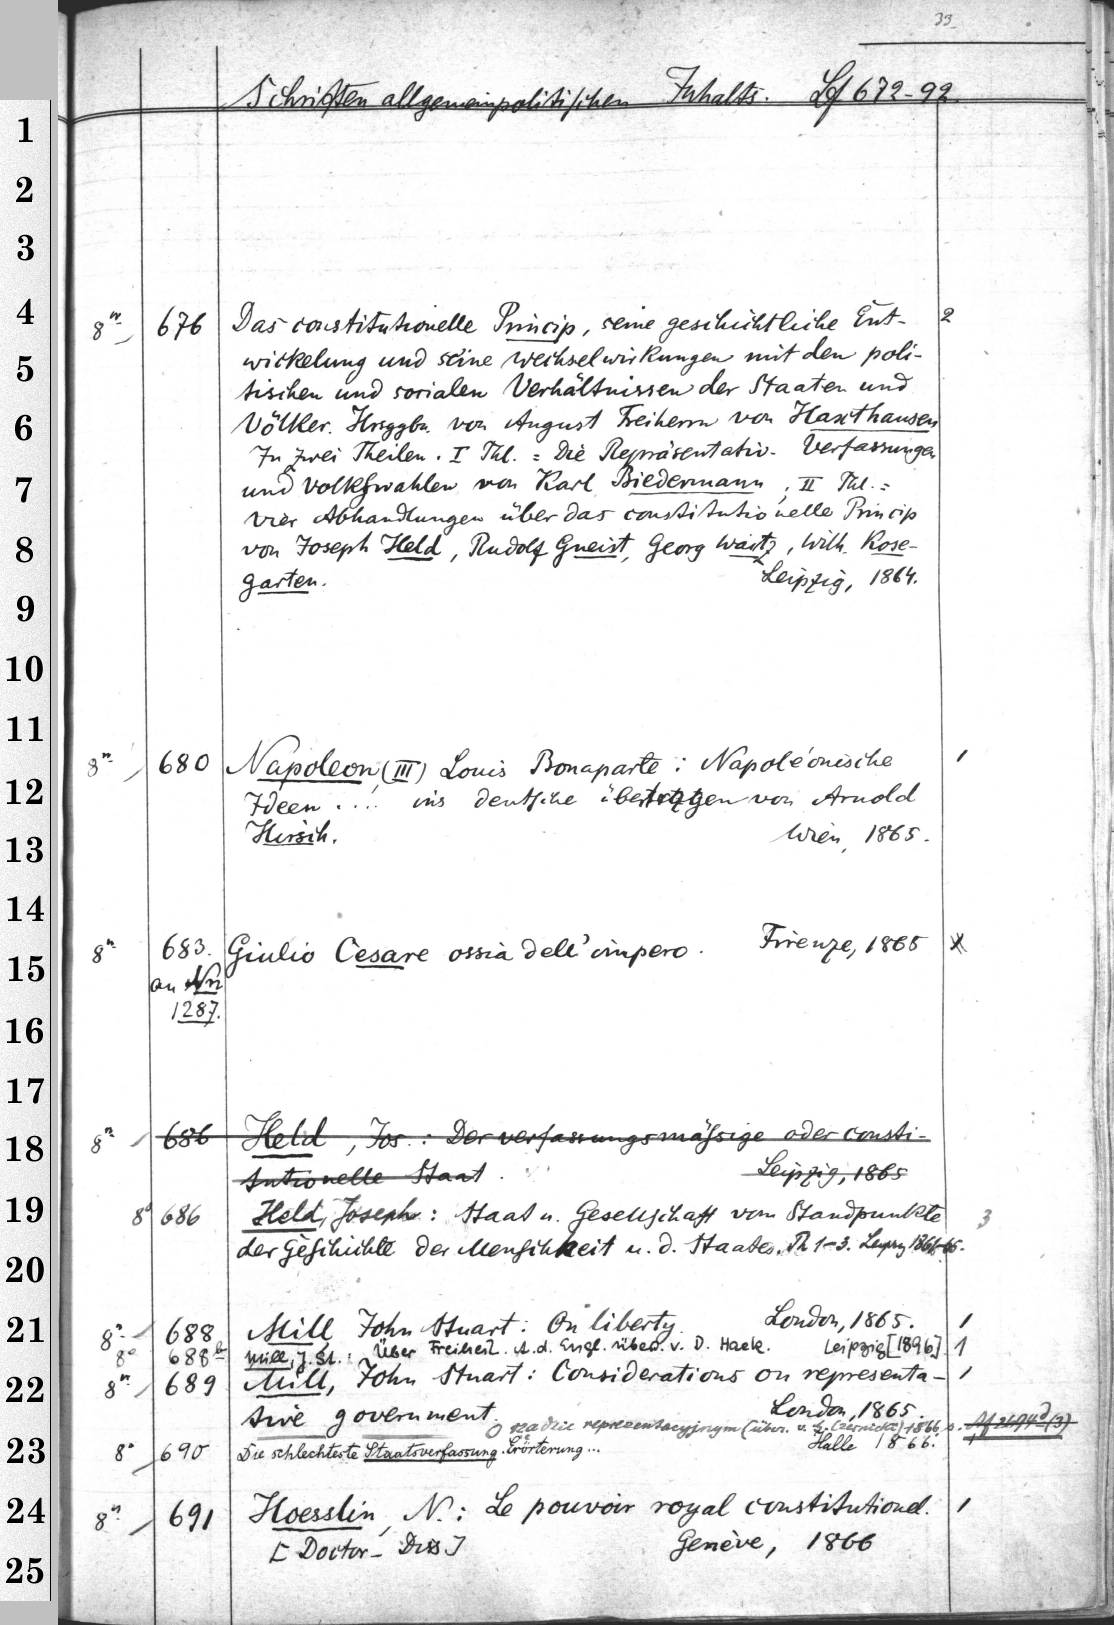 33
Schriften allgemeinpolitischen Inhalts. Lf 672-92.
1
2
3
4
8n. 676 Das constitutionelle Princip, seine geschichtliche Ent- 2
wickelung und seine Wechselwirkungen mit den poli-
5
tischen und socialen Verhältnissen der Staaten und
6
Völker. Hrsggbn. von August Freiherrn von Haxthausen
In zwei Theilen. I Thl. = Die Repräsentativ-Verfassungen
7
und Volkswahlen von Karl Biedermann, II Thl. =
vier Abhandlungen über das constitutionelle Princip
8
von Joseph Held, Rudolf Gneist, Georg Waitz, Wilh. Kose-
garten. Leipzig, 1864.
9
10
11
8n. 680 Napoleon (III) Louis Bonaparte: Napoléonische 1
12
Ideen .... ins deutsche übertragen von Arnold
13
Hirsch. Wien, 1865.
14
8n. 683. Giulio Cesare ossia dell'impero. Firenze, 1865
15
an Nn
1287.
16
17
18
8n. 686 Held, Jos.: Der verfassungsmässige oder consti-
tutionelle Staat. Leipzig, 1865
19
8° 686 Held, Joseph: Staat u. Gesellschaft vom Standpunkte 3
der Geschichte der Menschheit u. d. Staates. Th 1-3. Leipzig 1861-65.
20
21
8n. 688 Mill, John Stuart: On liberty. London, 1865. 1
8° 688b Mill, J. St.: Über Freiheit. A. d. Engl. übers. v. D. Haek. Leipzig [1896] 1
22
8n. 689 Mill, John Stuart: Considerations on representa- 1
tive government London, 1865.
O rządzie reprezentacyjnym (über. v. G. Czernicki) 1866 s.
23
8° 690 Die schlechteste Staatsverfassung. Erörterung... Halle 1866.
24
8n. 691 Hoesslin, N.: Le pouvoir royal constitutionel. 1
[Doctor-Diss] Genève, 1866
25